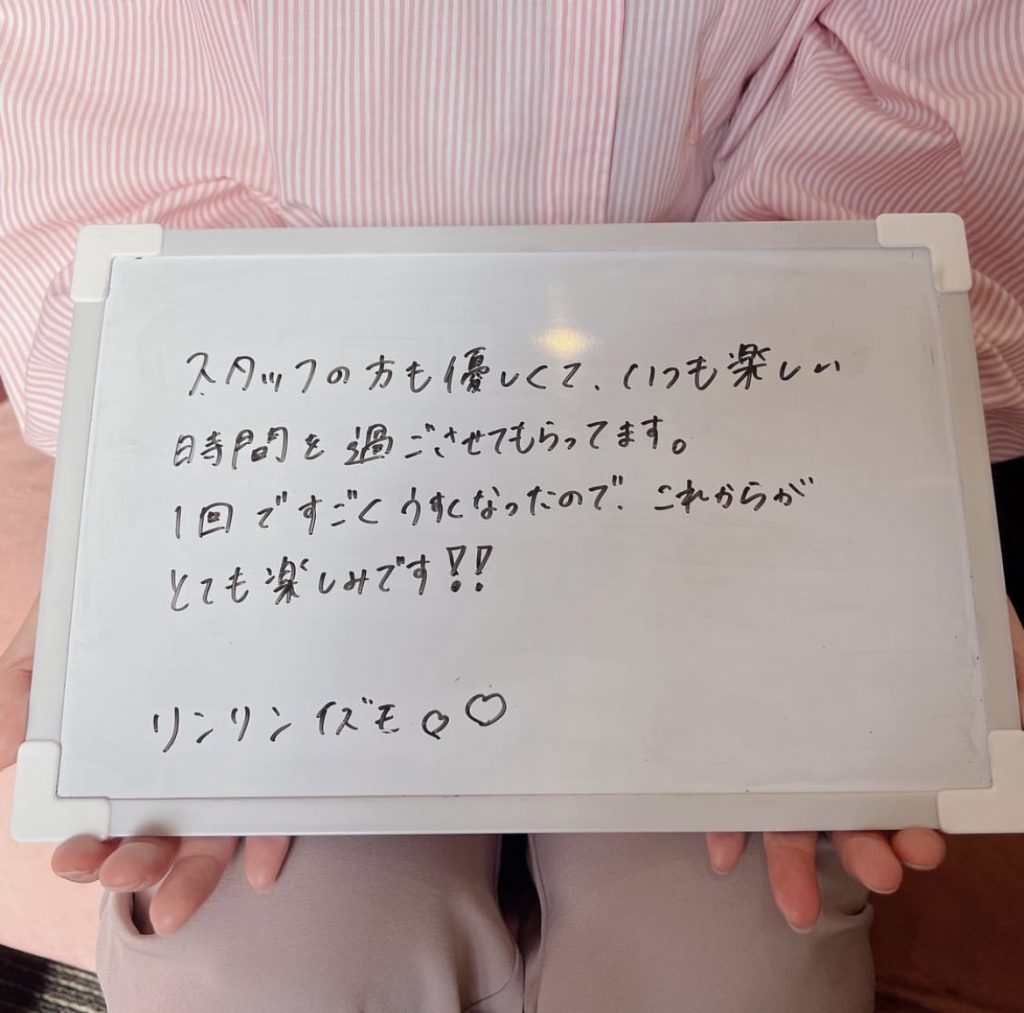 スタッフの方も優しくて、いつも楽しい
時間を過ごさせてもらってます。
1回ですごくうすくなったので、これからが
とても楽しみです!!
リンリンイズモ♡♡